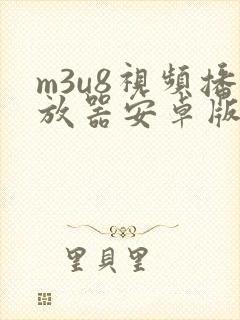 m3u8視頻播
放器安卓版
里貝里